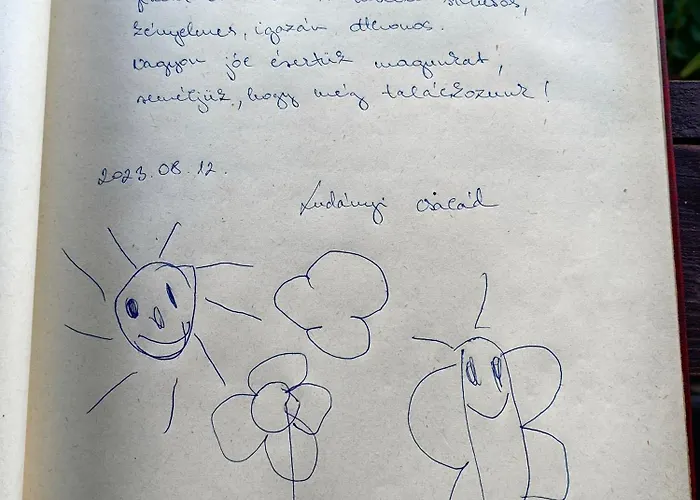 kényelmes, igazán otthonos.
nagyon jól éreztük magunkat,
reméljük, hogy még találkozunk!
2023. 08. 12.
család